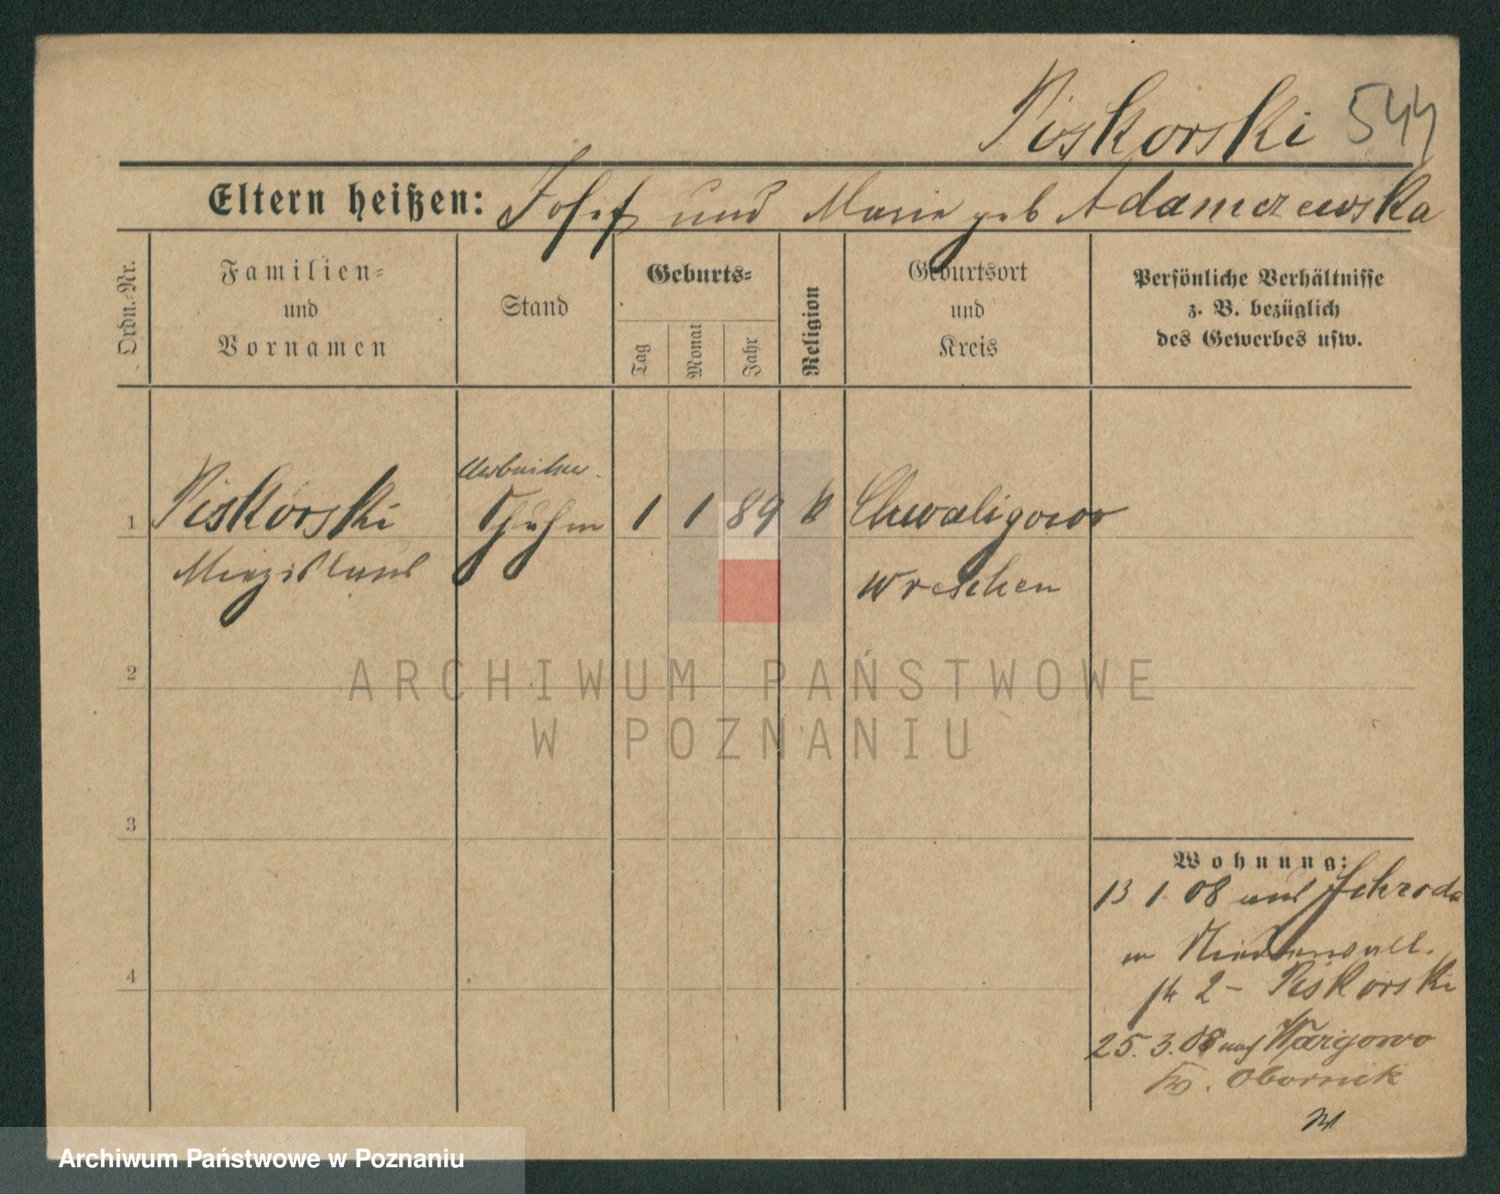 Piskorski 544
Eltern heißen: Josef und Marie geb Adamczewska
Ordn.-Nr.
Familien-
und
Vornamen
Stand
Geburts-
Tag
Monat
Jahr
Religion
Geburtsort
und
Kreis
Persönliche Verhältnisse
z. B. bezüglich
des Gewerbes usw.
Arbeiter
1 Piskorski 1 1 89 k Chwaligowo
Miezislaus Wreschen
2
ARCHIWUM PAŃSTWOWE
W POZNANIU
3
Wohnung:
13 1 08 aus Schroda
4
2 - Piskorski
25. 3. 08 nach Wargowo
Kr. Obornik
Archiwum Państwowe w Poznaniu